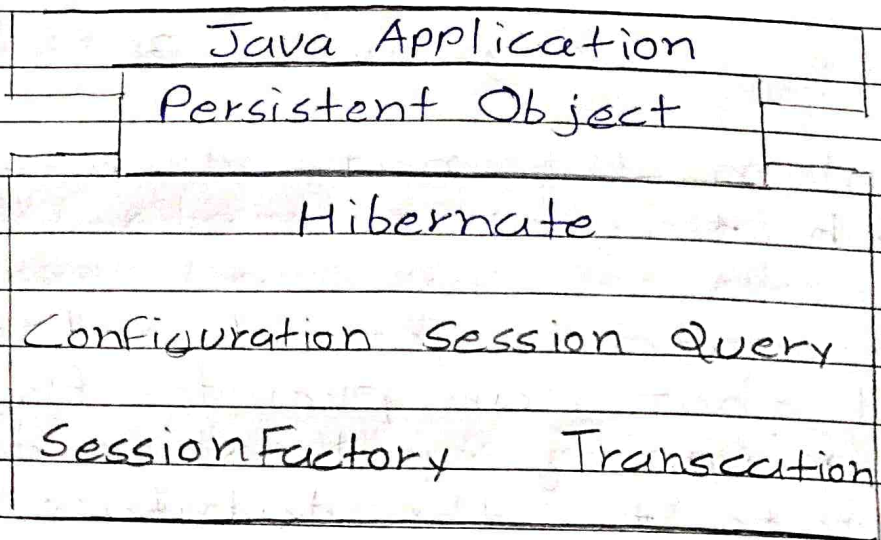 Java Application
Persistent Object
Hibernate
Configuration Session Query
SessionFactory Transcation